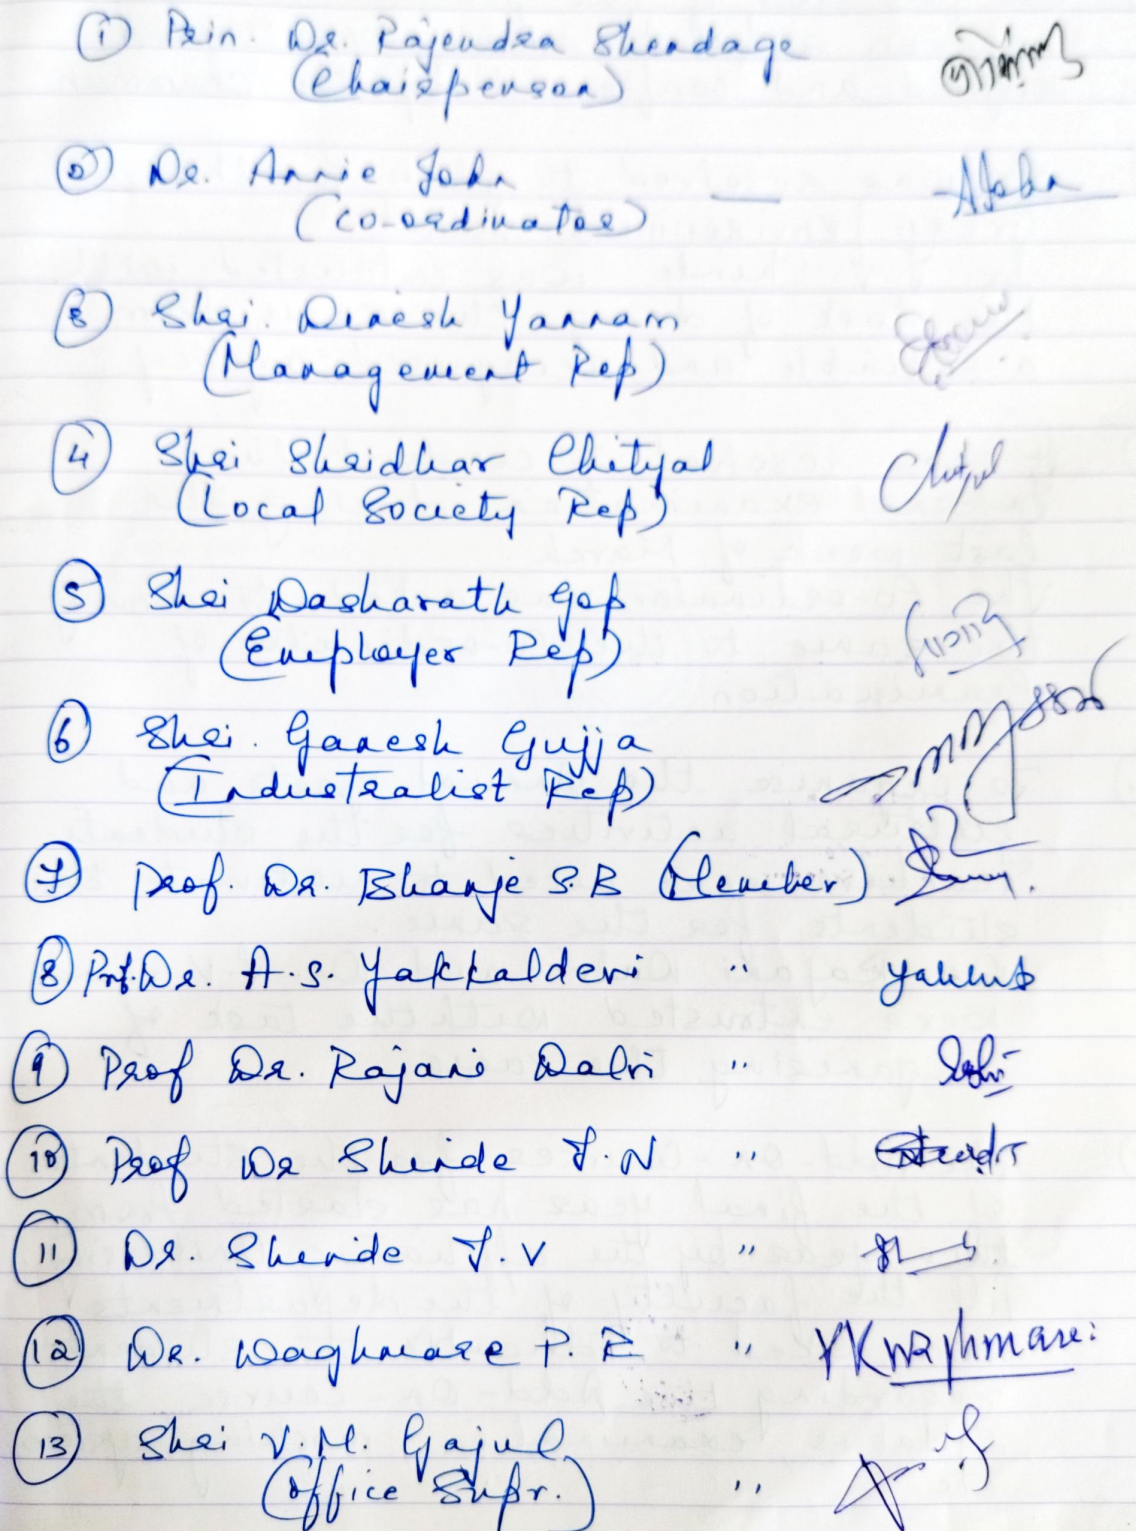 ① Prin. Dr. Rajendra Shendage
(Chairperson)
② Dr. Annie John — AJohn
(Co-ordinator)
③ Shri. Dinesh Yannam
(Management Rep)
④ Shri Shridhar Chityal Chityal
(Local Society Rep)
⑤ Shri Dasharath Gop
(Employer Rep)
⑥ Shri. Ganesh Gujja
(Industralist Rep)
⑦ Prof. Dr. Bhanje S.B (Member)
⑧ Prof. Dr. A.S. Yakkaldevi "
⑨ Prof Dr. Rajani Dalvi "
⑩ Prof Dr Shinde J.N "
⑪ Dr. Shinde J.V "
⑫ Dr. Waghmare P. K " PKWaghmare
⑬ Shri V.M. Gajul
(Office Supr.) "